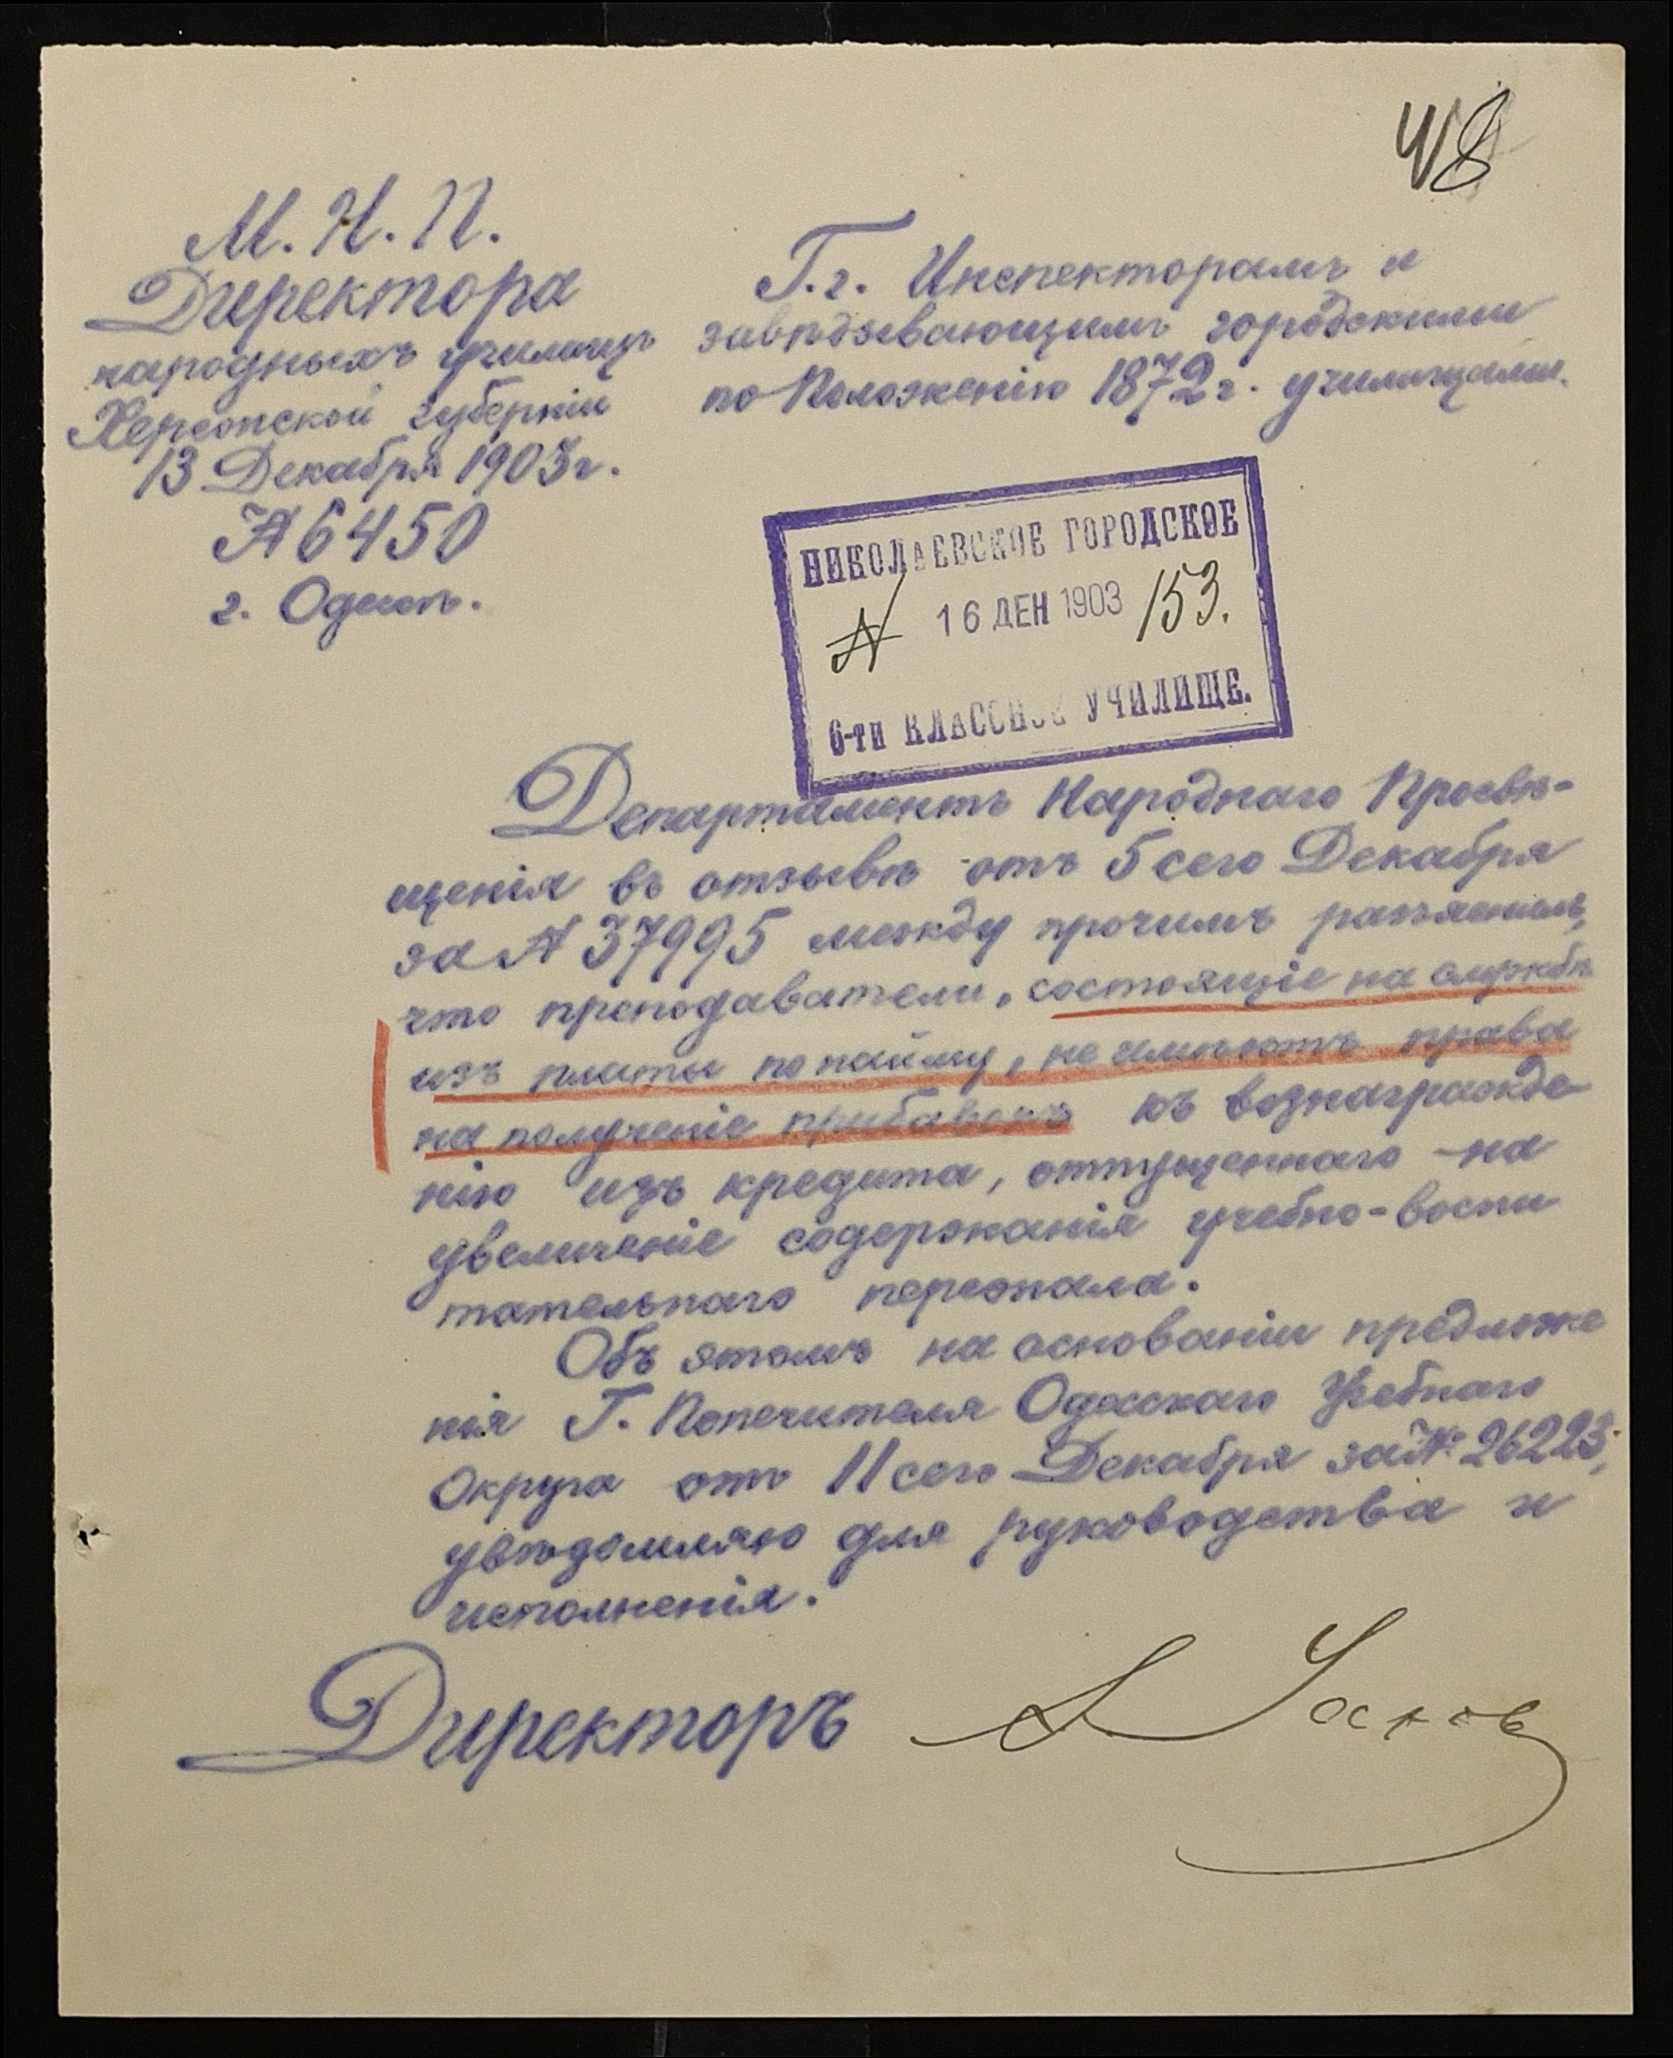 48
М. Н. П.
Директора
народныхъ училищъ
Херсонской губерніи
13 Декабря 1903 г.
№ 6450
г. Одесса.
Г.г. Инспекторамъ и
завѣдывающимъ городскими
по Положенію 1872 г. училищами.
НИКОЛАЕВСКОЕ ГОРОДСКОЕ
№ 16 ДЕК 1903 153.
6-ти КЛАССНОЕ УЧИЛИЩЕ.
Департаментъ Народнаго Просвѣ-
щенія въ отзывѣ отъ 5 сего Декабря
за № 37995 между прочимъ разъяснилъ,
что преподаватели, состоящіе на службѣ
изъ платы по найму, не имѣютъ права
на полученіе прибавокъ къ вознагражде
нію изъ кредита, отпущеннаго на
увеличеніе содержанія учебно-воспи
тательнаго персонала.
Объ этомъ на основаніи предложе
нія Г. Попечителя Одесскаго Учебнаго
Округа отъ 11 сего Декабря за № 26223,
увѣдомляю для руководства и
исполненія.
Директоръ